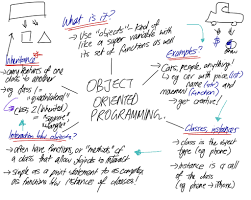 What is it?
→ Use "objects" - kind of
like a super variable with
its set of functions as well
Inheritance
→ carry features of one
class to another
→ eg class 1 =
"quadrilateral"
class 2 (inherited)
= "square",
OBJECT
ORIENTED
PROGRAMMING.
Examples?
→ Cars, people, anything!
→ eg car with price (int)
name (str) and
movement (function)
→ get creative!
Interaction b/w objects?
→ often have functions, or "methods" of
a class that allow objects to interact
→ simple as a print statement to as complex
as functions b/w instances of classes!
Classes, instances
→ class is the object
type (eg phone)
→ instance is a call
of the class
(eg phone → iPhone)